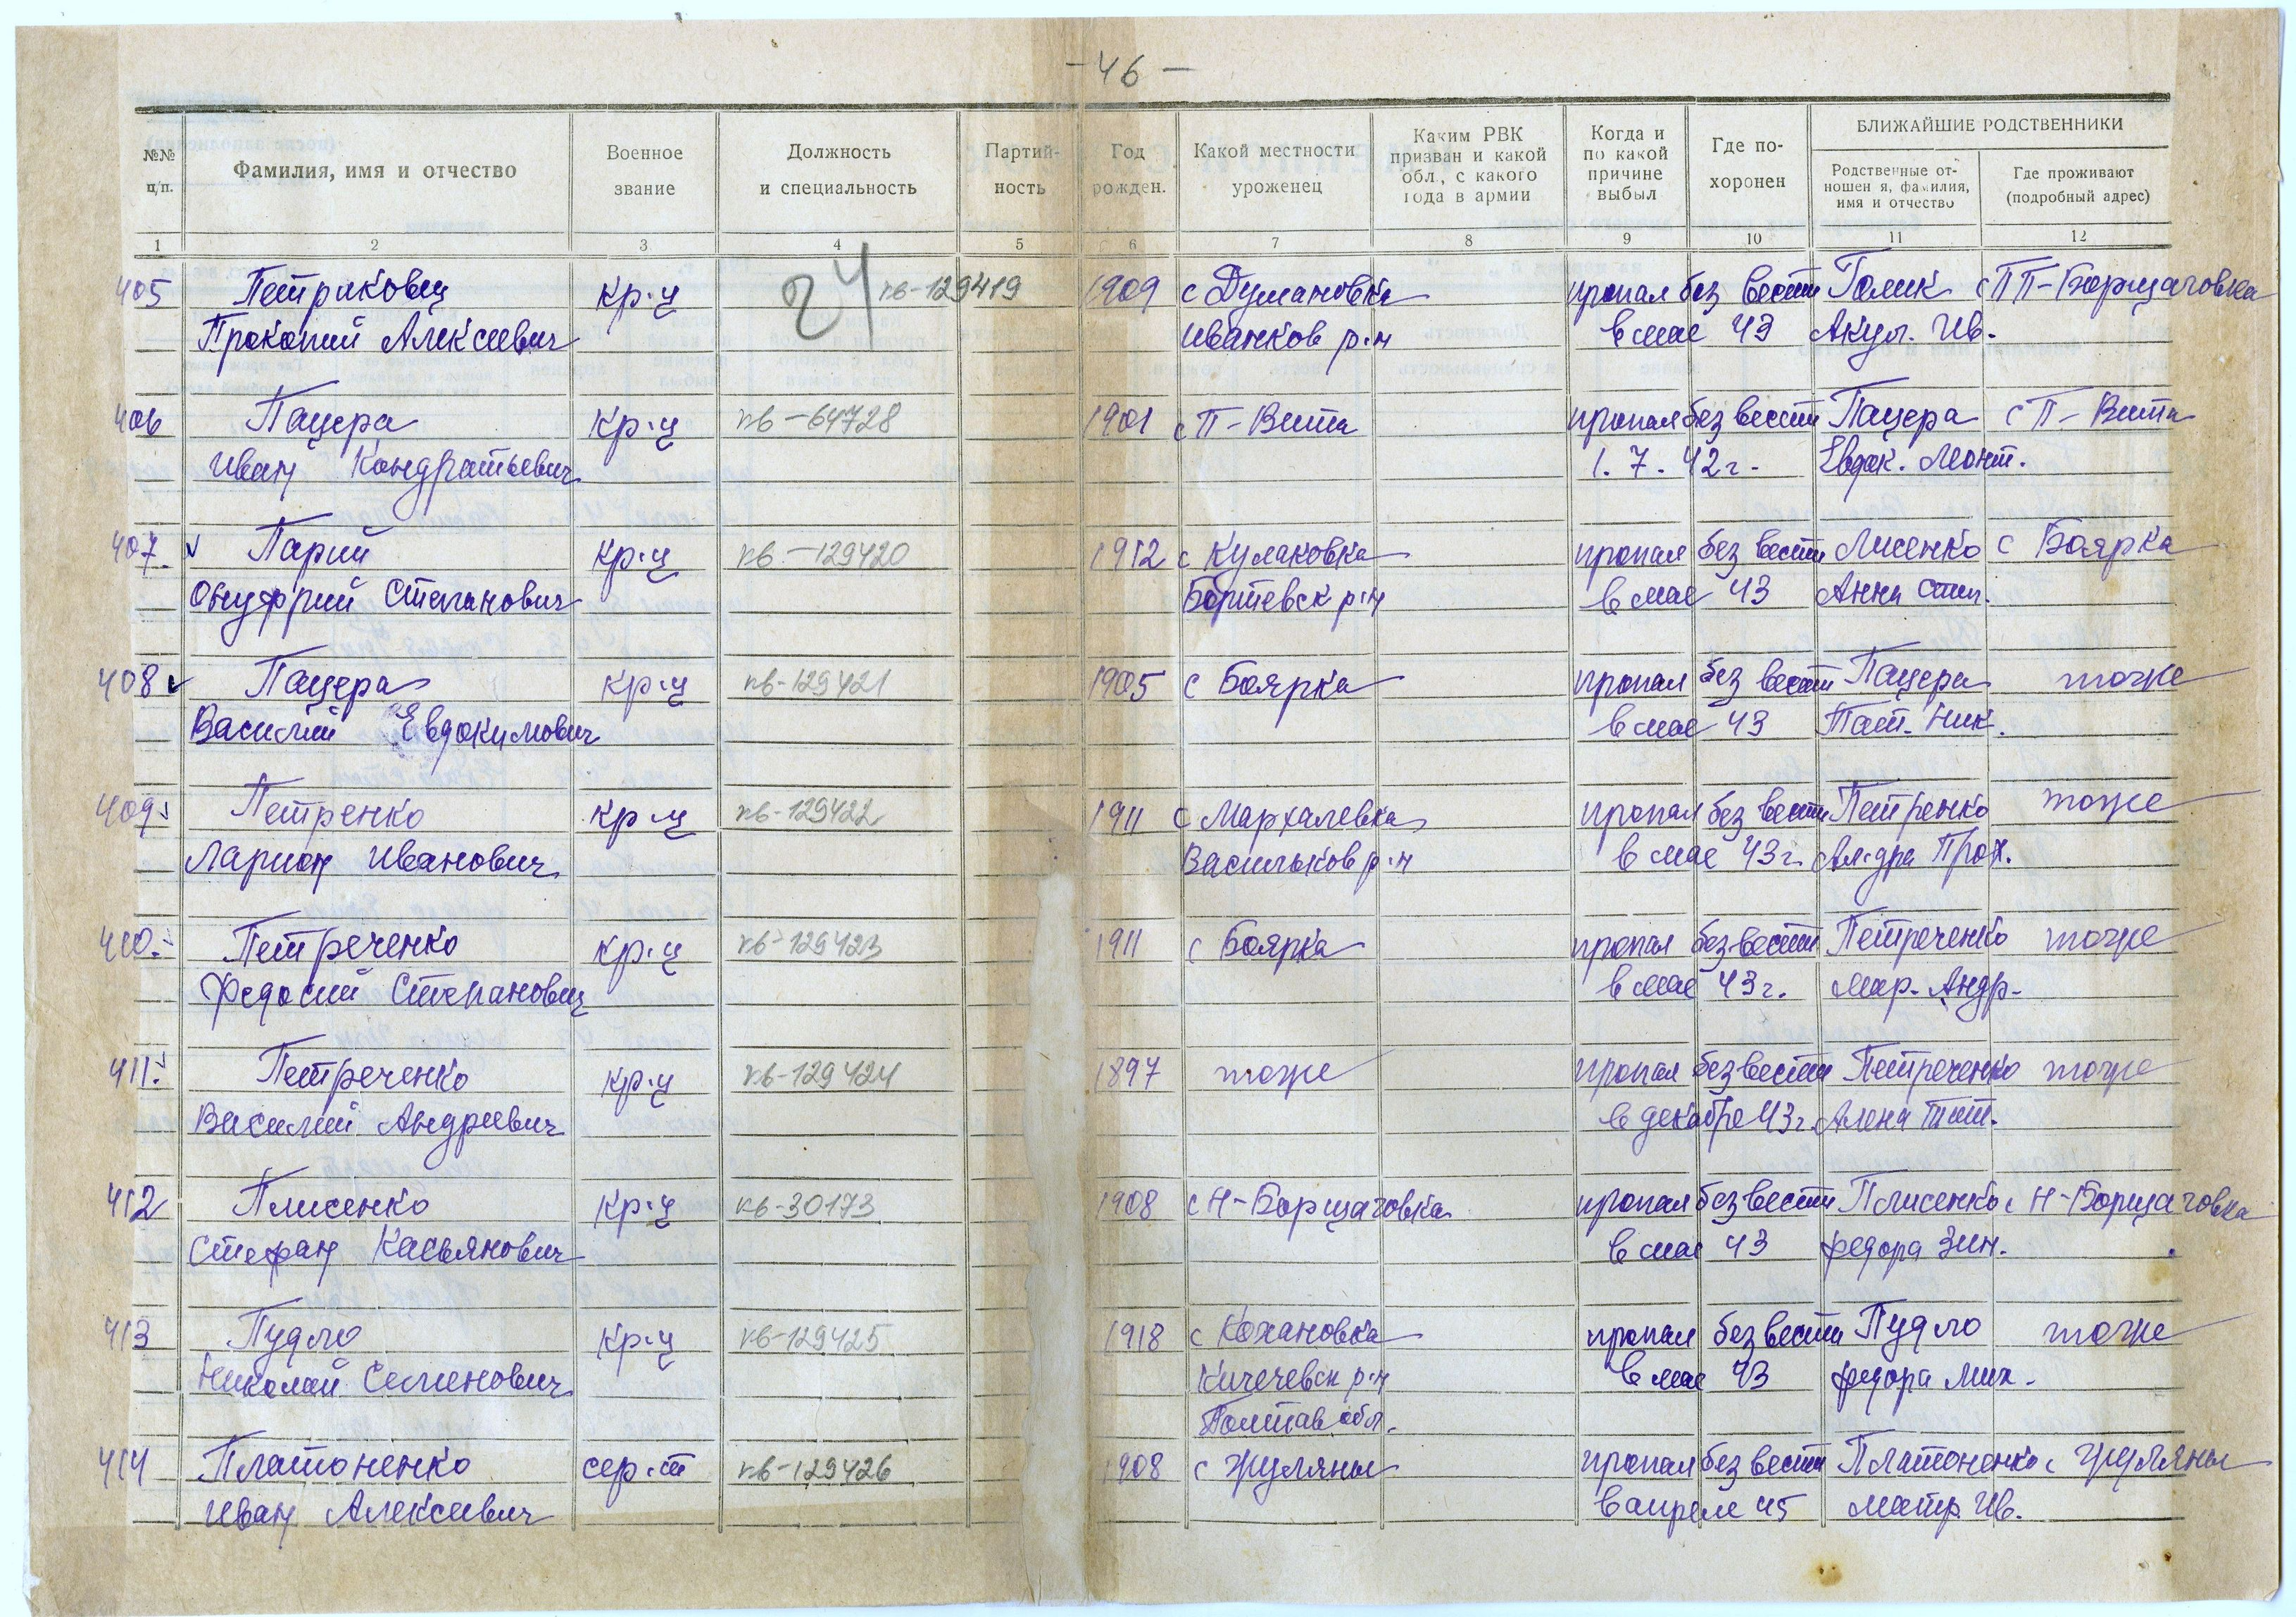 - 46 -
№№ п/п.
Фамилия, имя и отчество
Военное звание
Должность и специальность
Партий- ность
Год рожден.
Какой местности уроженец
Каким РВК призван и какой обл., с какого года в армии
Когда и по какой причине выбыл
Где по- хоронен
БЛИЖАЙШИЕ РОДСТВЕННИКИ
Родственные от- ношен я, фамилия, имя и отчество
Где проживают (подробный адрес)
1 2 3 4 5 6 7 8 9 10 11 12
24
405 Петраковец кр-ц кв-129419 1909 с Думановка пропал без вести Голик с ПП-Борщаговка
Прокопий Алексеевич Иванков р-н в мае 43 Акул. Ив.
406 Пацера кр-ц кв-64728 1901 с П-Вита пропал без вести Пацера с П-Вита
Иван Кондратьевич 1.7.42г. Евдок. Монт.
407 Парий кр-ц кв-129420 1912 с Кулаковка пропал без вести Лисенко с Боярка
Онуфрий Степанович р-н в мае 43 Анна Степ.
408 Пацера кр-ц кв-129421 1905 с Боярка пропал без вести Пацера тоже
Василий Евдокимович в мае 43 Тат. Ник.
409 Петренко кр-ц кв-129422 1911 с Мархалевка пропал без вести Петренко тоже
Ларион Иванович Васильков р-н в мае 43г. Ал-дра Прох.
410. Петреченко кр-ц кв-129423 1911 с Боярка пропал без вести Петреченко тоже
Федосий Степанович в мае 43г. Мар. Андр.
411. Петреченко кр-ц кв-129424 1897 тоже пропал без вести Петреченко тоже
Василий Андреевич в декабре 43г. Алена Тит.
412 Плисенко кр-ц кв-30173 1908 с Н-Борщаговка пропал без вести Плисенко с Н-Борщаговка
Стефан Касьянович в мае 43 Федора Зин.
413 Пудло кр-ц кв-129425 1918 с Кохановка пропал без вести Пудло тоже
Николай Семенович р-н в мае 43 Федора Мих.
Полтав обл.
414 Платоненко сер-т кв-129426 1908 с Жуляны пропал без вести Платоненко с Жуляны
Иван Алексеевич в апреле 45 Матр. Ив.